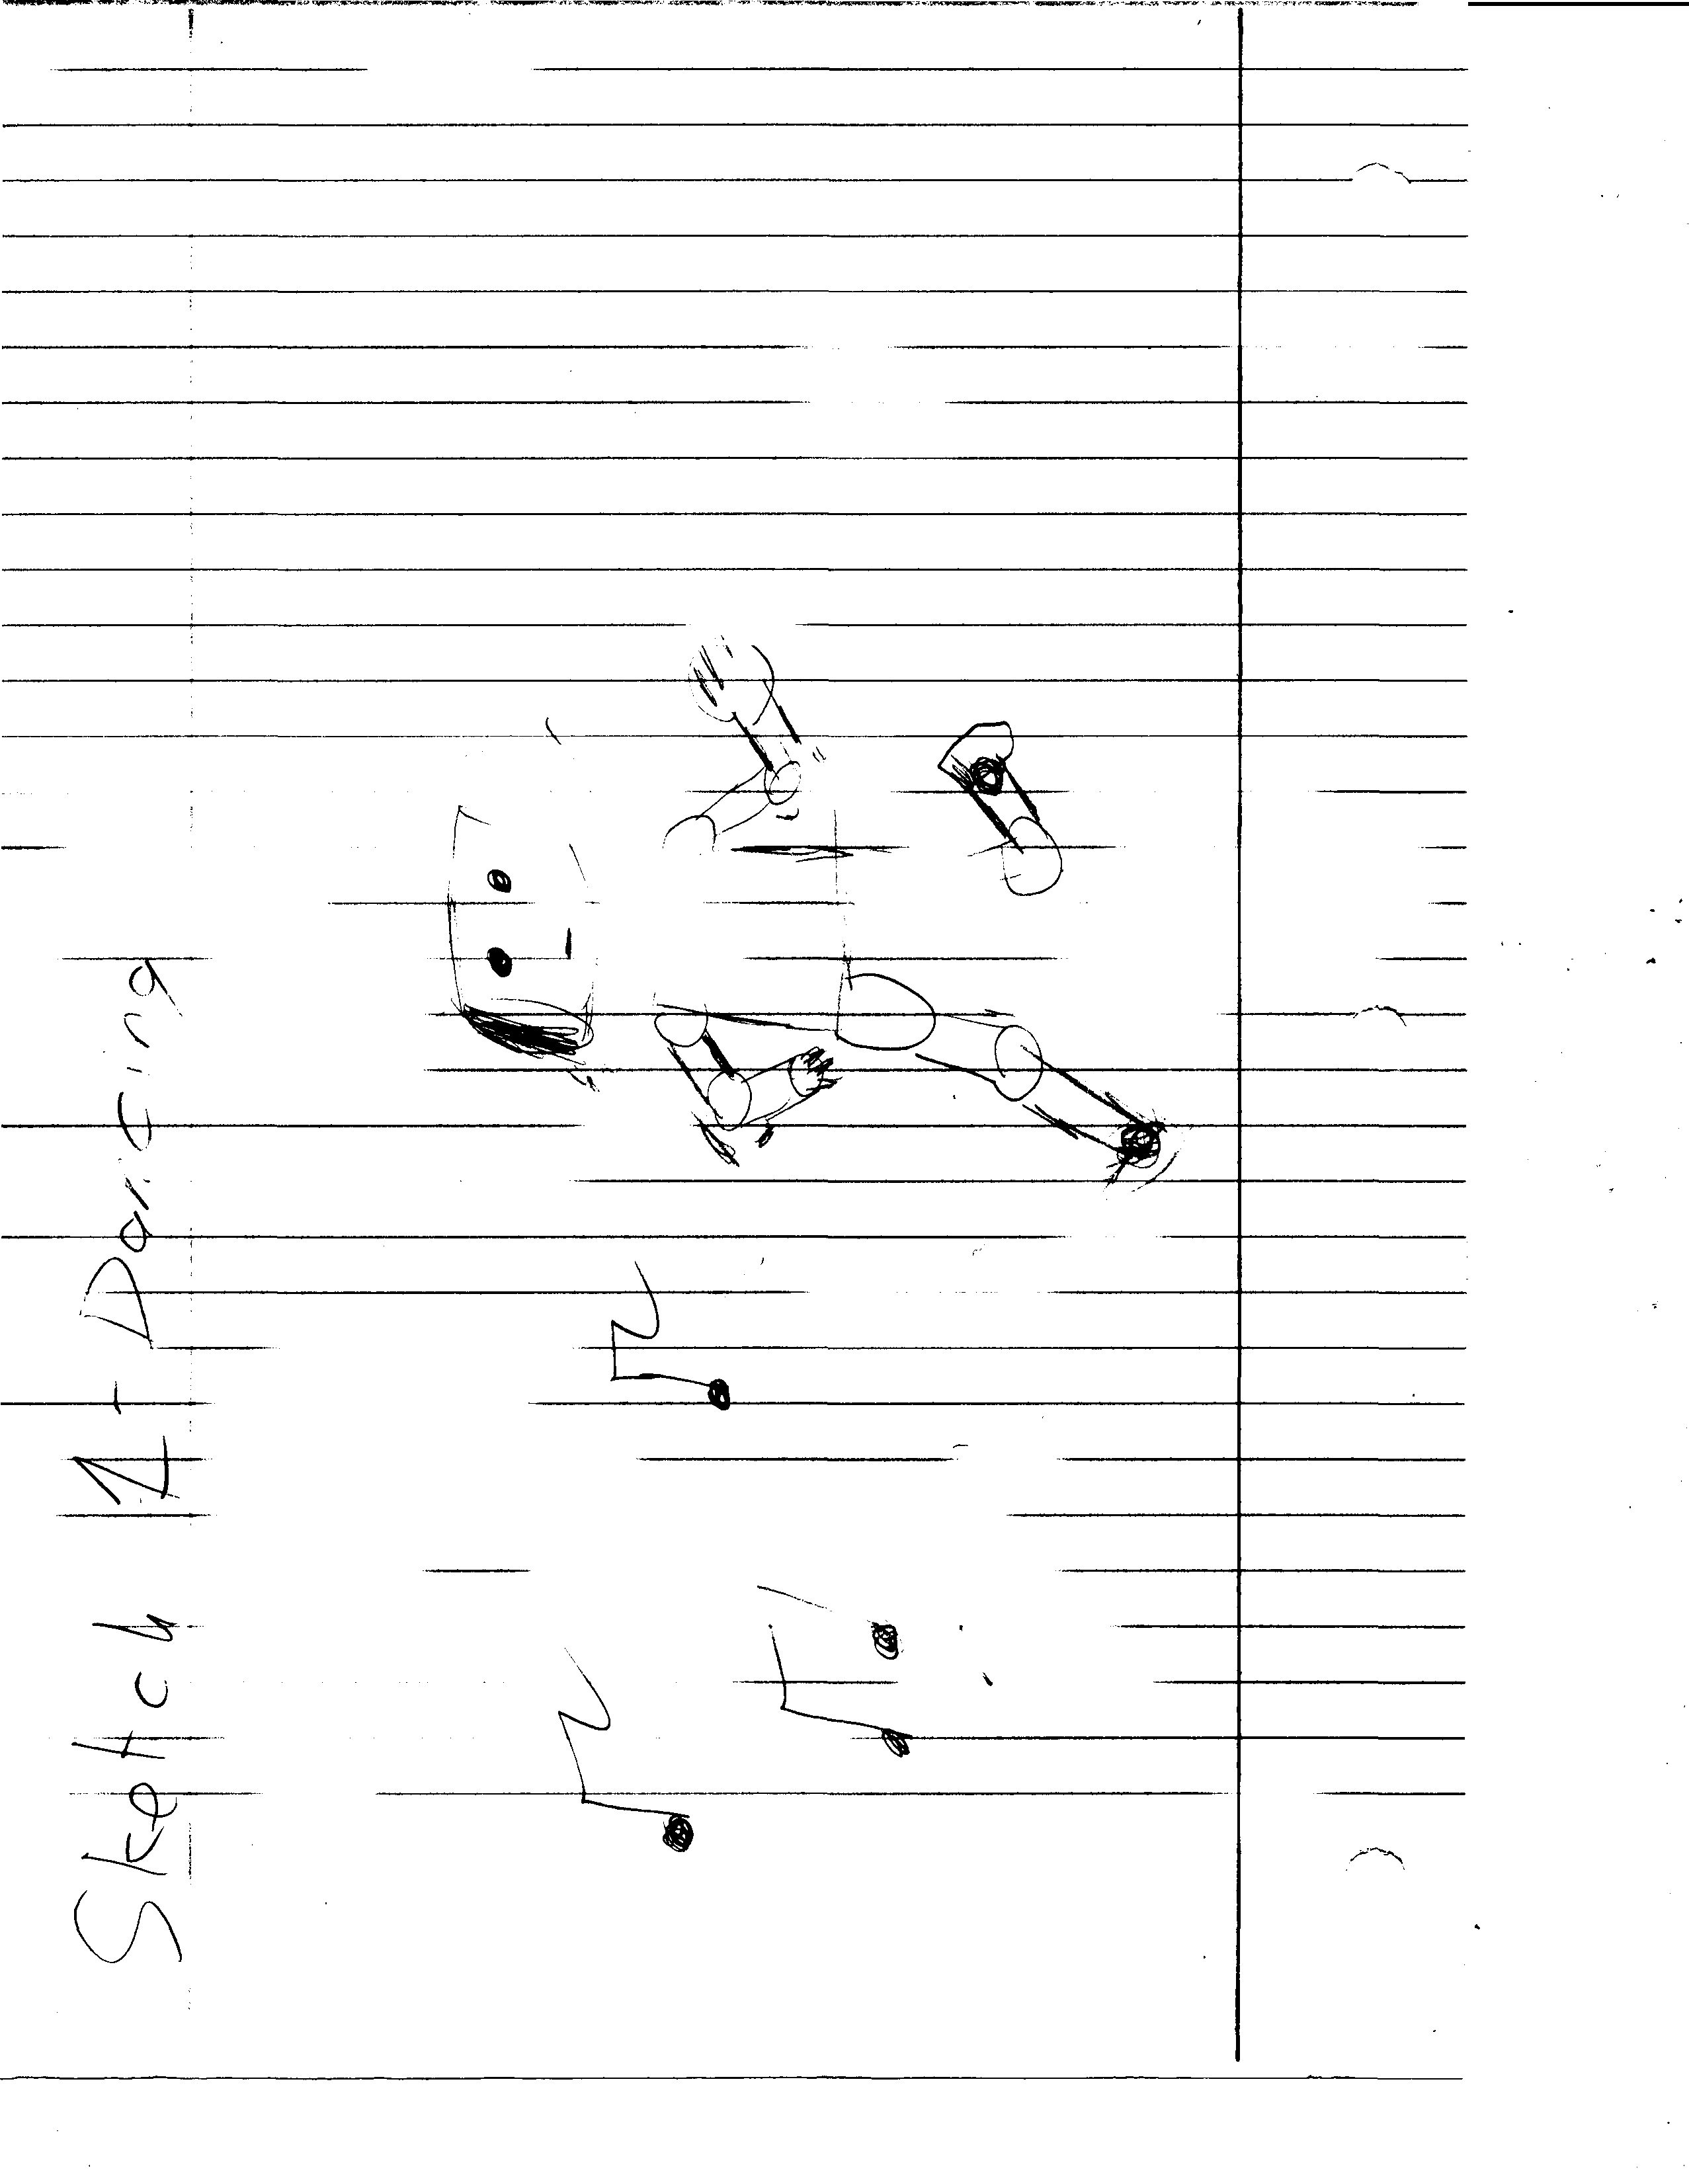 Sketch 1 - Dancing